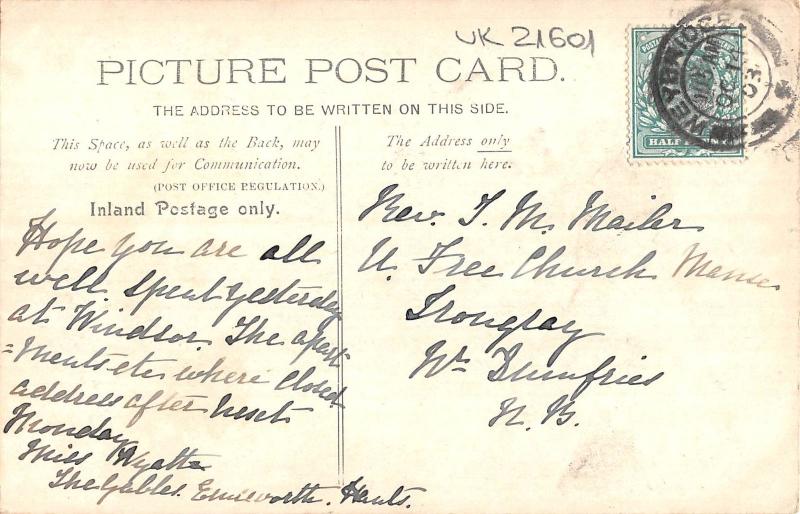 UK 21601
PICTURE POST CARD.
THE ADDRESS TO BE WRITTEN ON THIS SIDE.
This Space, as well as the Back, may
now be used for Communication.
(POST OFFICE REGULATION.)
Inland Postage only.
Hope you are all
well. Spent yesterday
at Windsor. The apart
=ments etc where closed
address after next
Monday
Miss Wyatt
The Gables. Emsworth. Hants.
The Address only
to be written here.
Rev. T. M. Mailer
U. Free Church Manse
Irongray
Nr. Dumfries
N. B.
HALF PENNY
WEYBRIDGE
OC
03